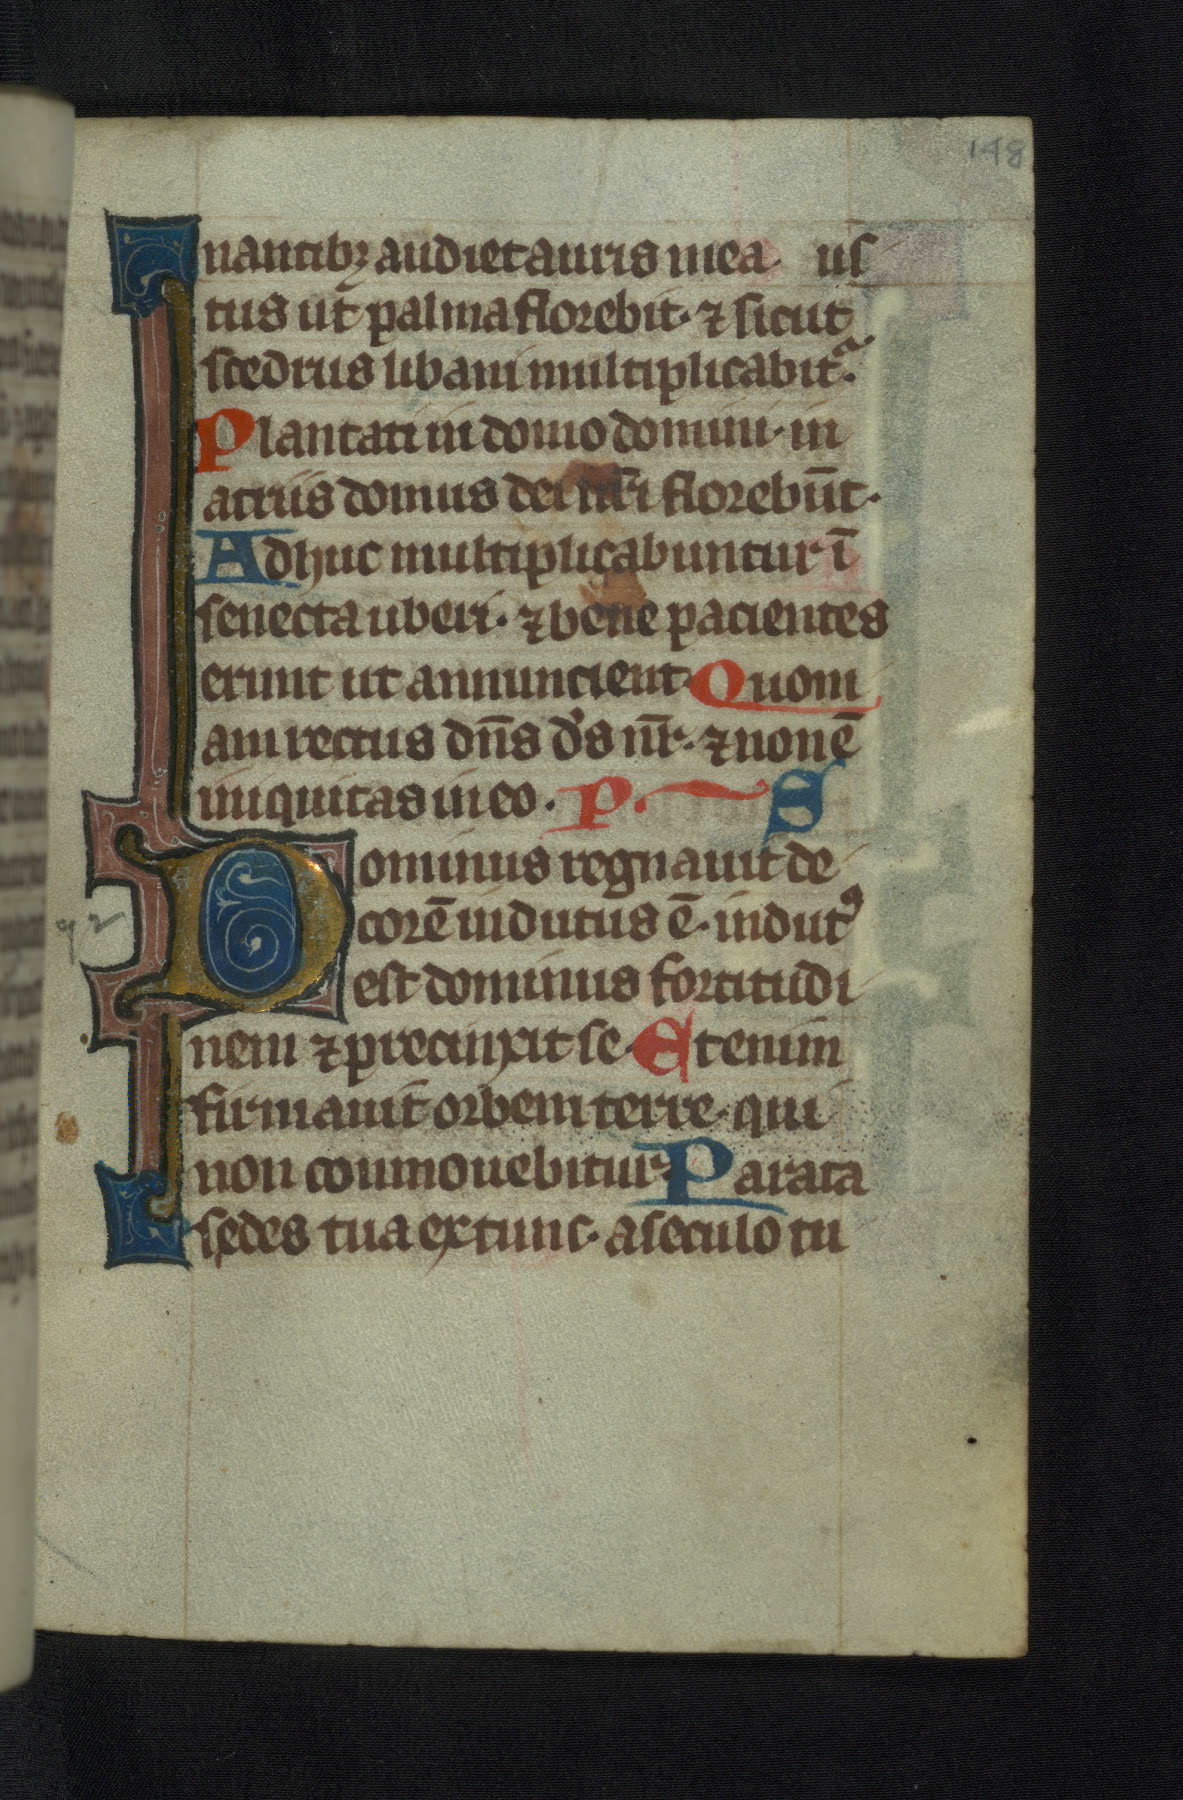 148
nantibꝫ audiet auris mea. us
tus ut palma florebit. ⁊ sicut
scedrus libani multiplicabit᷑.
Plantati in domo domini. in
atriis domus dei nr̄i florebūt.
Adhuc multiplicabuntur ī
senecta uberi. ⁊ bene pacientes
erunt ut annuncient. Quoni
am rectus dn̄s ds̄ nr̄. ⁊ non ē
iniquitas in eo. P. S
Dominus regnauit de
corē indutus ē. indutꝰ
92
est dominus fortitudi
nem ⁊ precinxit se. Etenim
firmauit orbem terre. qui
non conmouebitur. Parata
sedes tua ex tunc. a seculo tu